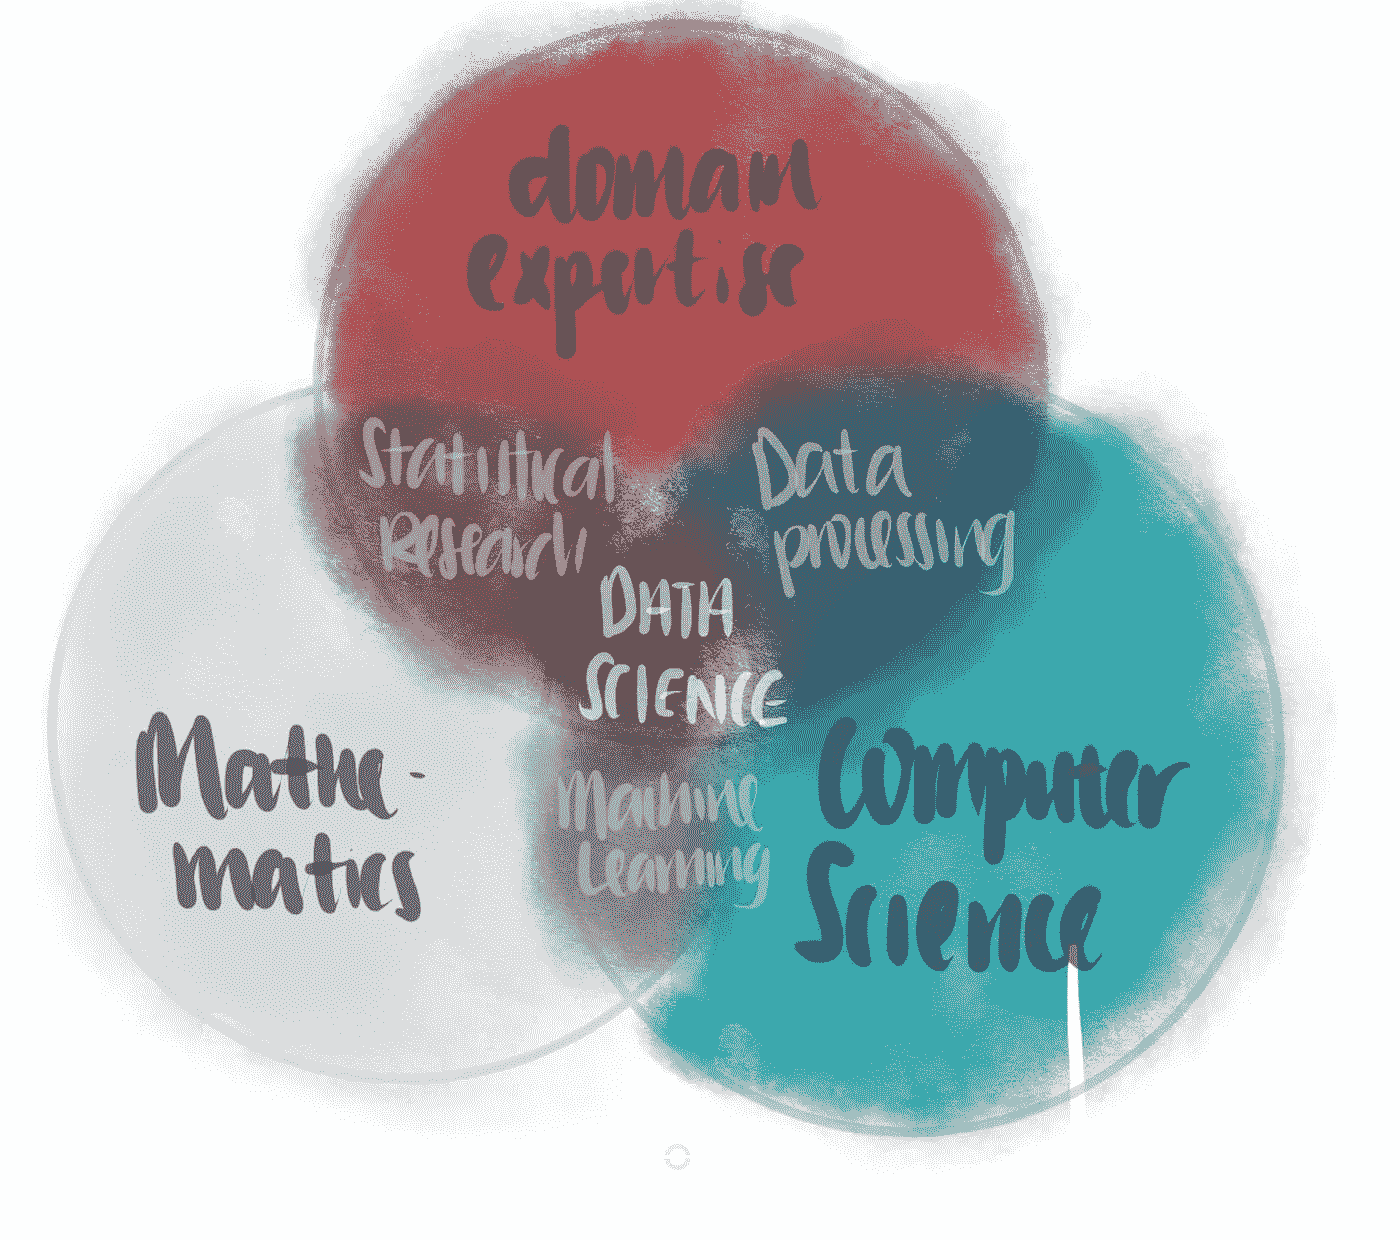 domain
expertise
Statistical
Research
Data
processing
DATA
SCIENCE
Mathe-
matics
Machine
Learning
Computer
Science